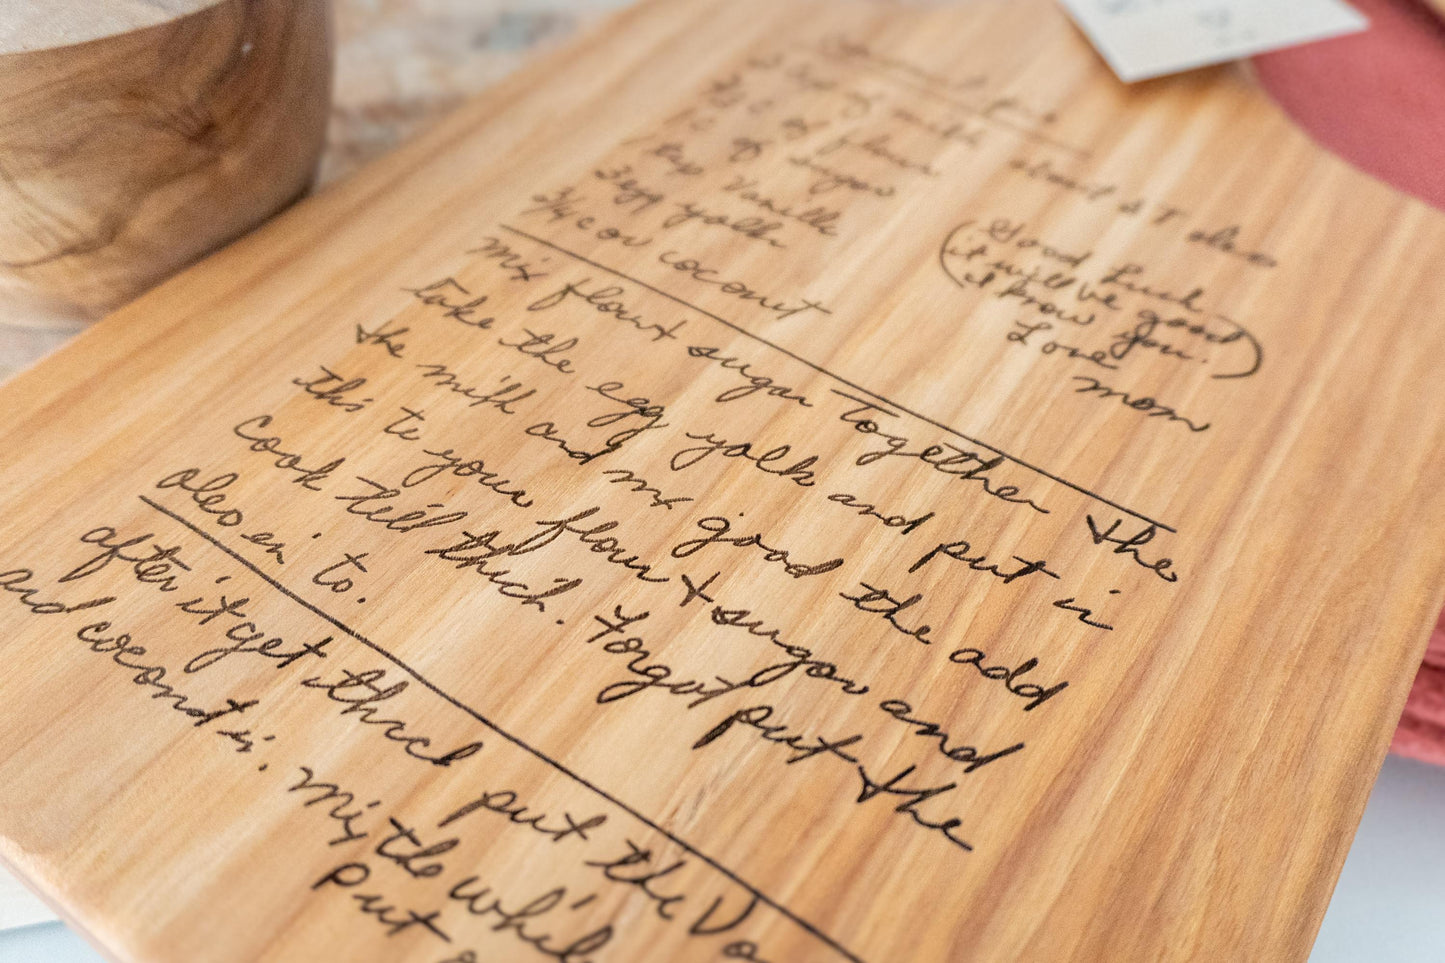 Coconut Pie
2 cups milk about 2 T oleo
3/4 c of flour
1 c of sugar
1 tsp Vanilla
3 egg yolk
3/4 c or coconut
(Good Luck
it will be good
I know you.)
Love
mom
mix flour + sugar Together the
take the egg yolk and put in
the milk and mix good the add
this to your flour + sugar and
cook till thick. Forgot put the
oleo in to.
after it get thick put the Va
and coconut in. mix the while
put